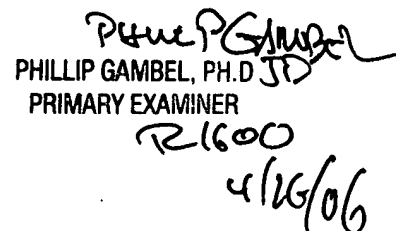 PHILLIP GAMBEL
PHILLIP GAMBEL, PH.D JD
PRIMARY EXAMINER
TC 1600
4/26/06